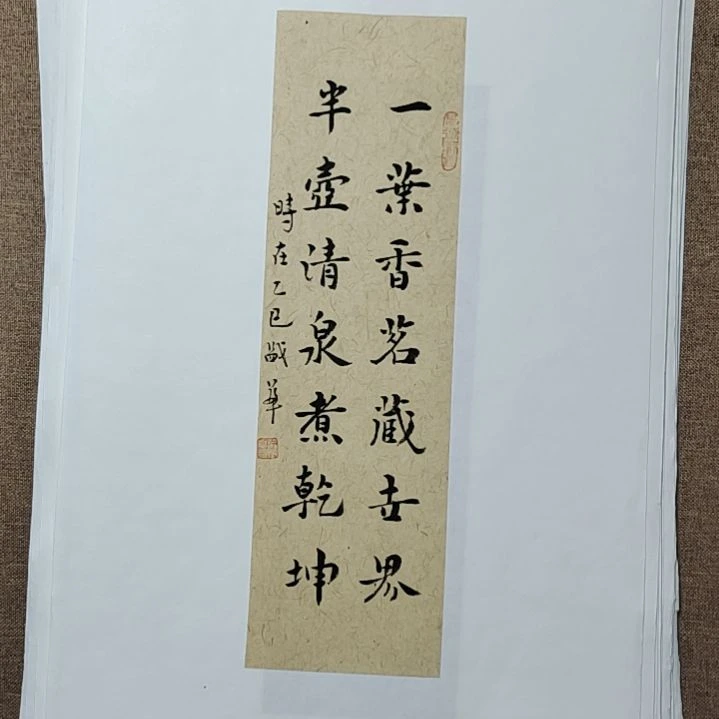 一葉香茗藏世界
半壺清泉煮乾坤
時在乙巳歲華